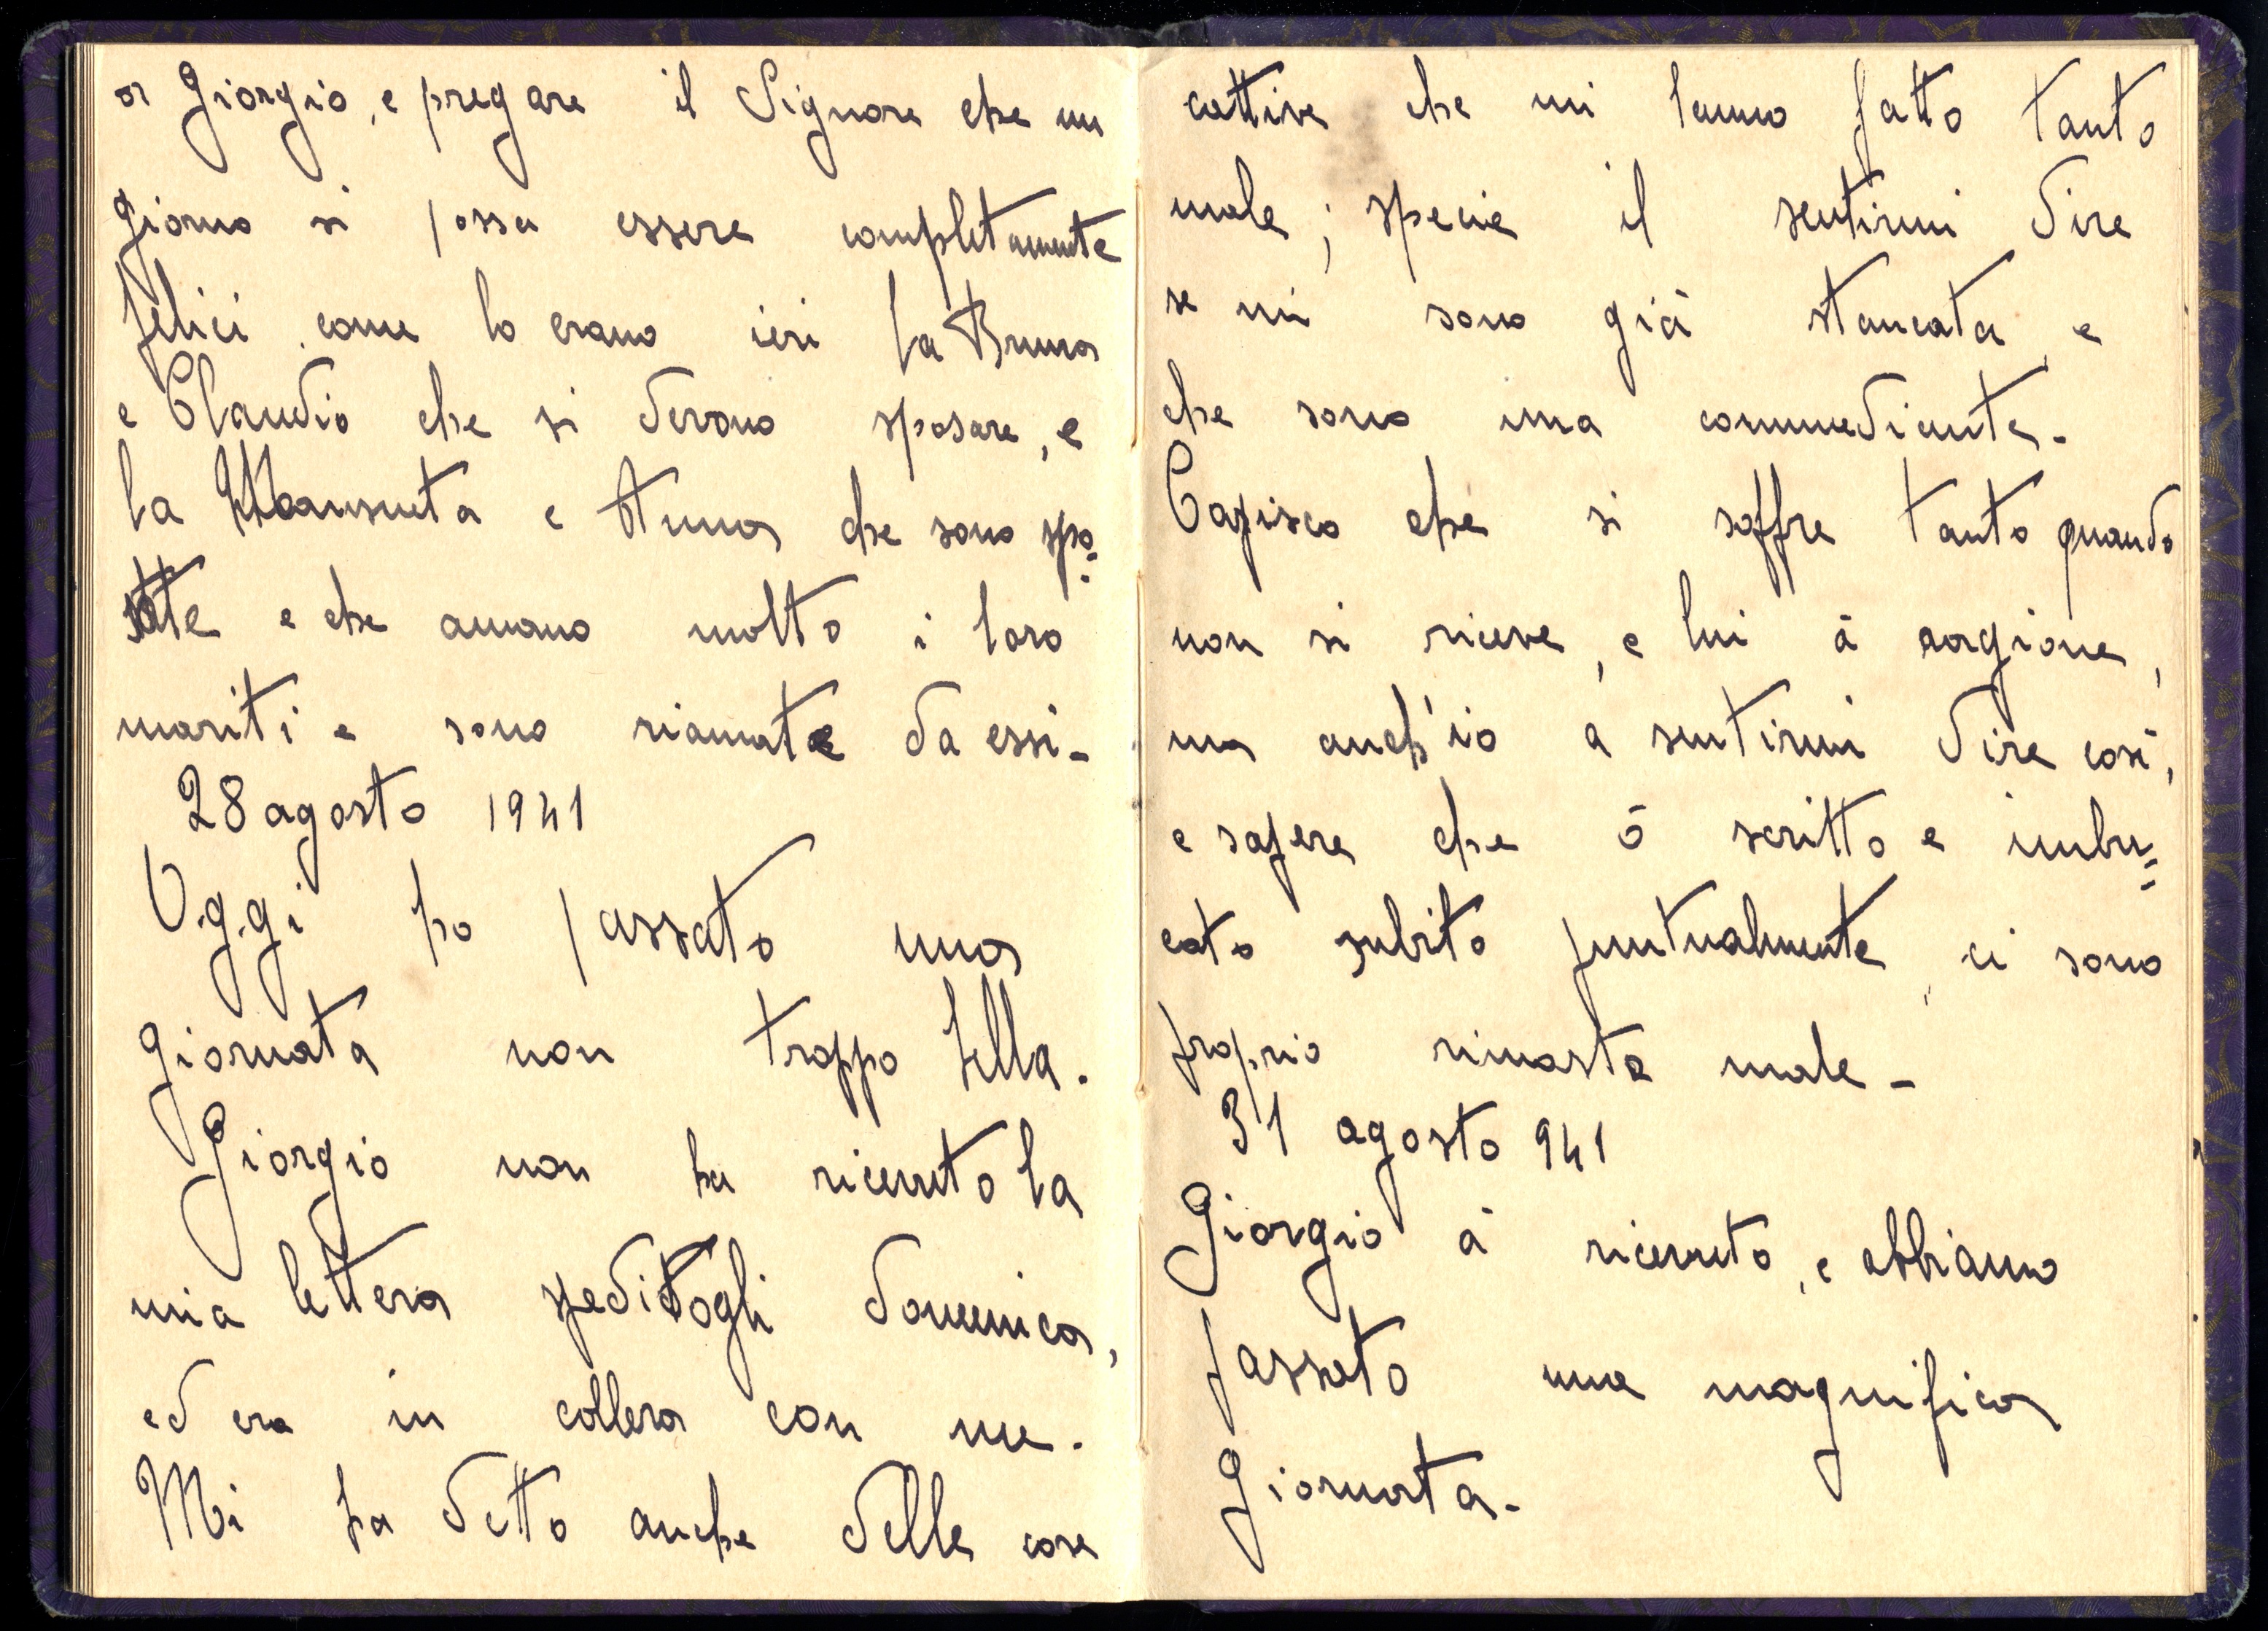 a Giorgio, e pregare il Signore che un
giorno si possa essere completamente
felici, come lo erano ieri la Bruna
e Claudio che si devono sposare, e
la Mansueta e Anna che sono spo=
sate e che amano molto i loro
mariti e sono riamate da essi-
28 agosto 1941
Oggi ho passato una
giornata non troppo bella.
Giorgio non ha ricevuto la
mia lettera speditogli domenica,
ed era in collera con me.
Mi ha detto anche delle cose
cattive che mi hanno fatto tanto
male; specie il sentirmi dire
se mi sono già stancata, e
che sono una commediante-
Capisco che si soffre tanto quando
non si riceve, e lui à ragione,
ma anch'io a sentirmi dire così,
e sapere che ò scritto e imbu=
cato subito puntualmente, ci sono
proprio rimasta male-
31 agosto 941
Giorgio à ricevuto, e abbiamo
passato una magnifica
giornata-